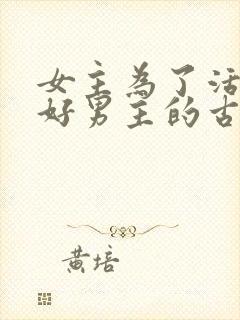 女主为了活
好男主的古
黄培